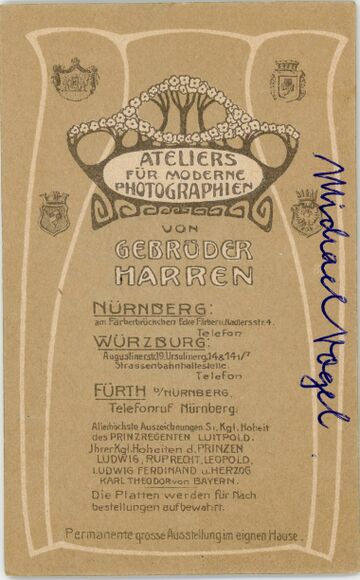 ATELIERS
FÜR MODERNE
PHOTOGRAPHIEN
VON
GEBRÜDER
HARREN
NÜRNBERG:
am Färberbrückchen Ecke Färber u. Adlersstr. 4.
Telefon
WÜRZBURG:
Augustinerstr. 19, Ursulinerg. 14 & 14 1/7
Strassenbahnhaltestelle.
Telefon
FÜRTH b/NÜRNBERG.
Telefonruf Nürnberg.
Allerhöchste Auszeichnungen Sr. Kgl. Hoheit
des PRINZREGENTEN LUITPOLD.
Jhrer Kgl. Hoheiten d. PRINZEN
LUDWIG, RUPRECHT, LEOPOLD,
LUDWIG FERDINAND u. HERZOG
KARL THEODOR von BAYERN.
Die Platten werden für Nach
bestellungen aufbewahrt.
Permanente grosse Ausstellung im eignen Hause.
Michael Vogel